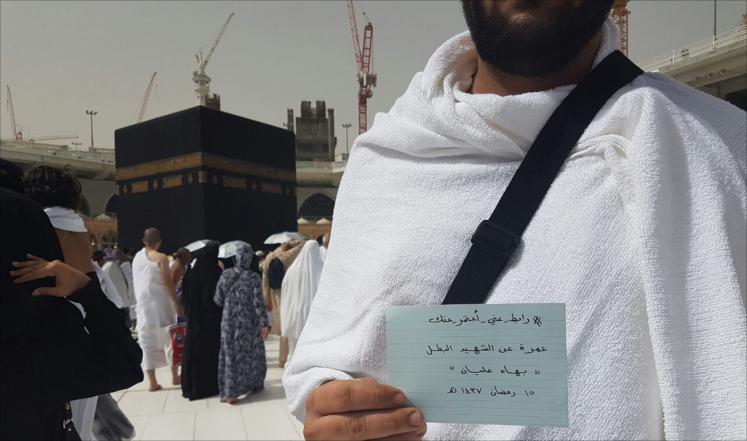 #رابط_عني_أعتمر_عنك
عمرة عن الشهيد البطل
"بهاء عليان"
١٥ رمضان ١٤٣٧ هـ